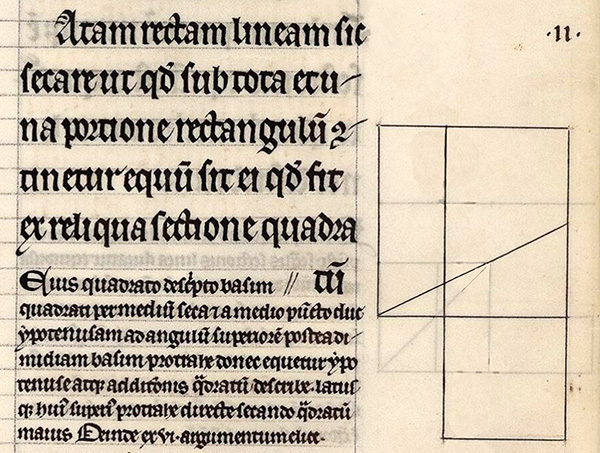 Atam rectam lineam sic
·11·
secare ut qđ sub tota et u-
na portione rectangulū ↄ-
tinetur equū sit ei qđ fit
ex reliqua sectione quadra
tū
Eius quadrato desc'pto basim //
quadrati per mediū seca ⁊ a medio pūcto duc
ypotenusam ad angulū superiorē postea di-
midiam basim protrahe donec equetur ypo
tenuse atq; additionis q̄dratū describe. latus
q; hui' superi' protrahe directe secando q̄dratū
maius Deinde ex vi. argumentum elice.